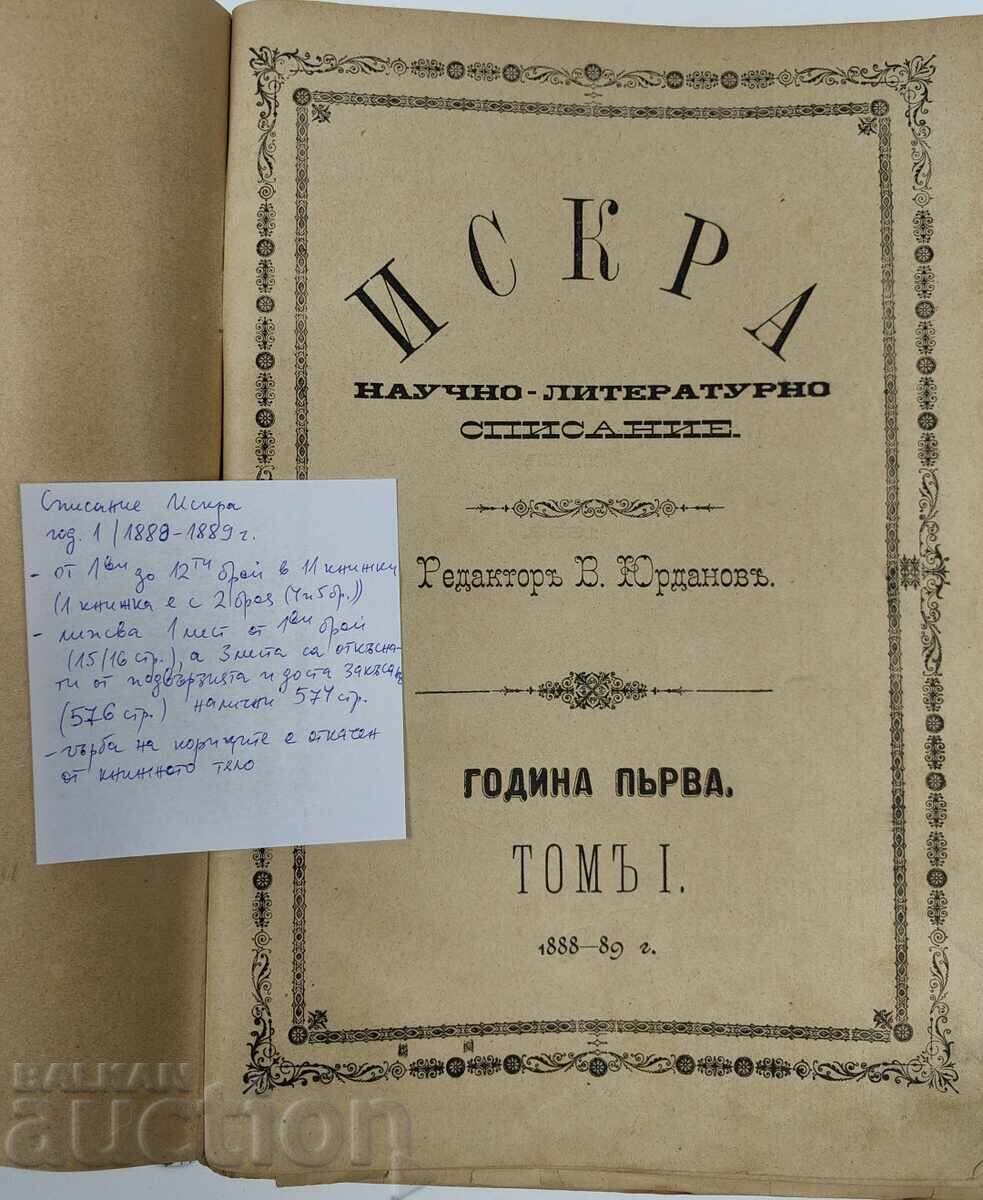 ИСКРА
НАУЧНО-ЛИТЕРАТУРНО
СПИСАНИЕ.
Редакторъ В. Юрдановъ.
ГОДИНА ПЪРВА.
ТОМЪ I.
1888—89 г.
Списание Искра
год. 1 / 1888-1889 г.
- от 1ви до 12ти брой в 11 книжки
(1 книжка е с 2 броя (4 и 5 бр.))
- липсва 1 лист от 1ви брой
(15/16 стр.), а 3 листа са откъсна-
ти от подвързията и доста закъсани
(576 стр.) налични 574 стр.
- гърба на кориците е откачен
от книжното тяло
BALKAN
auction